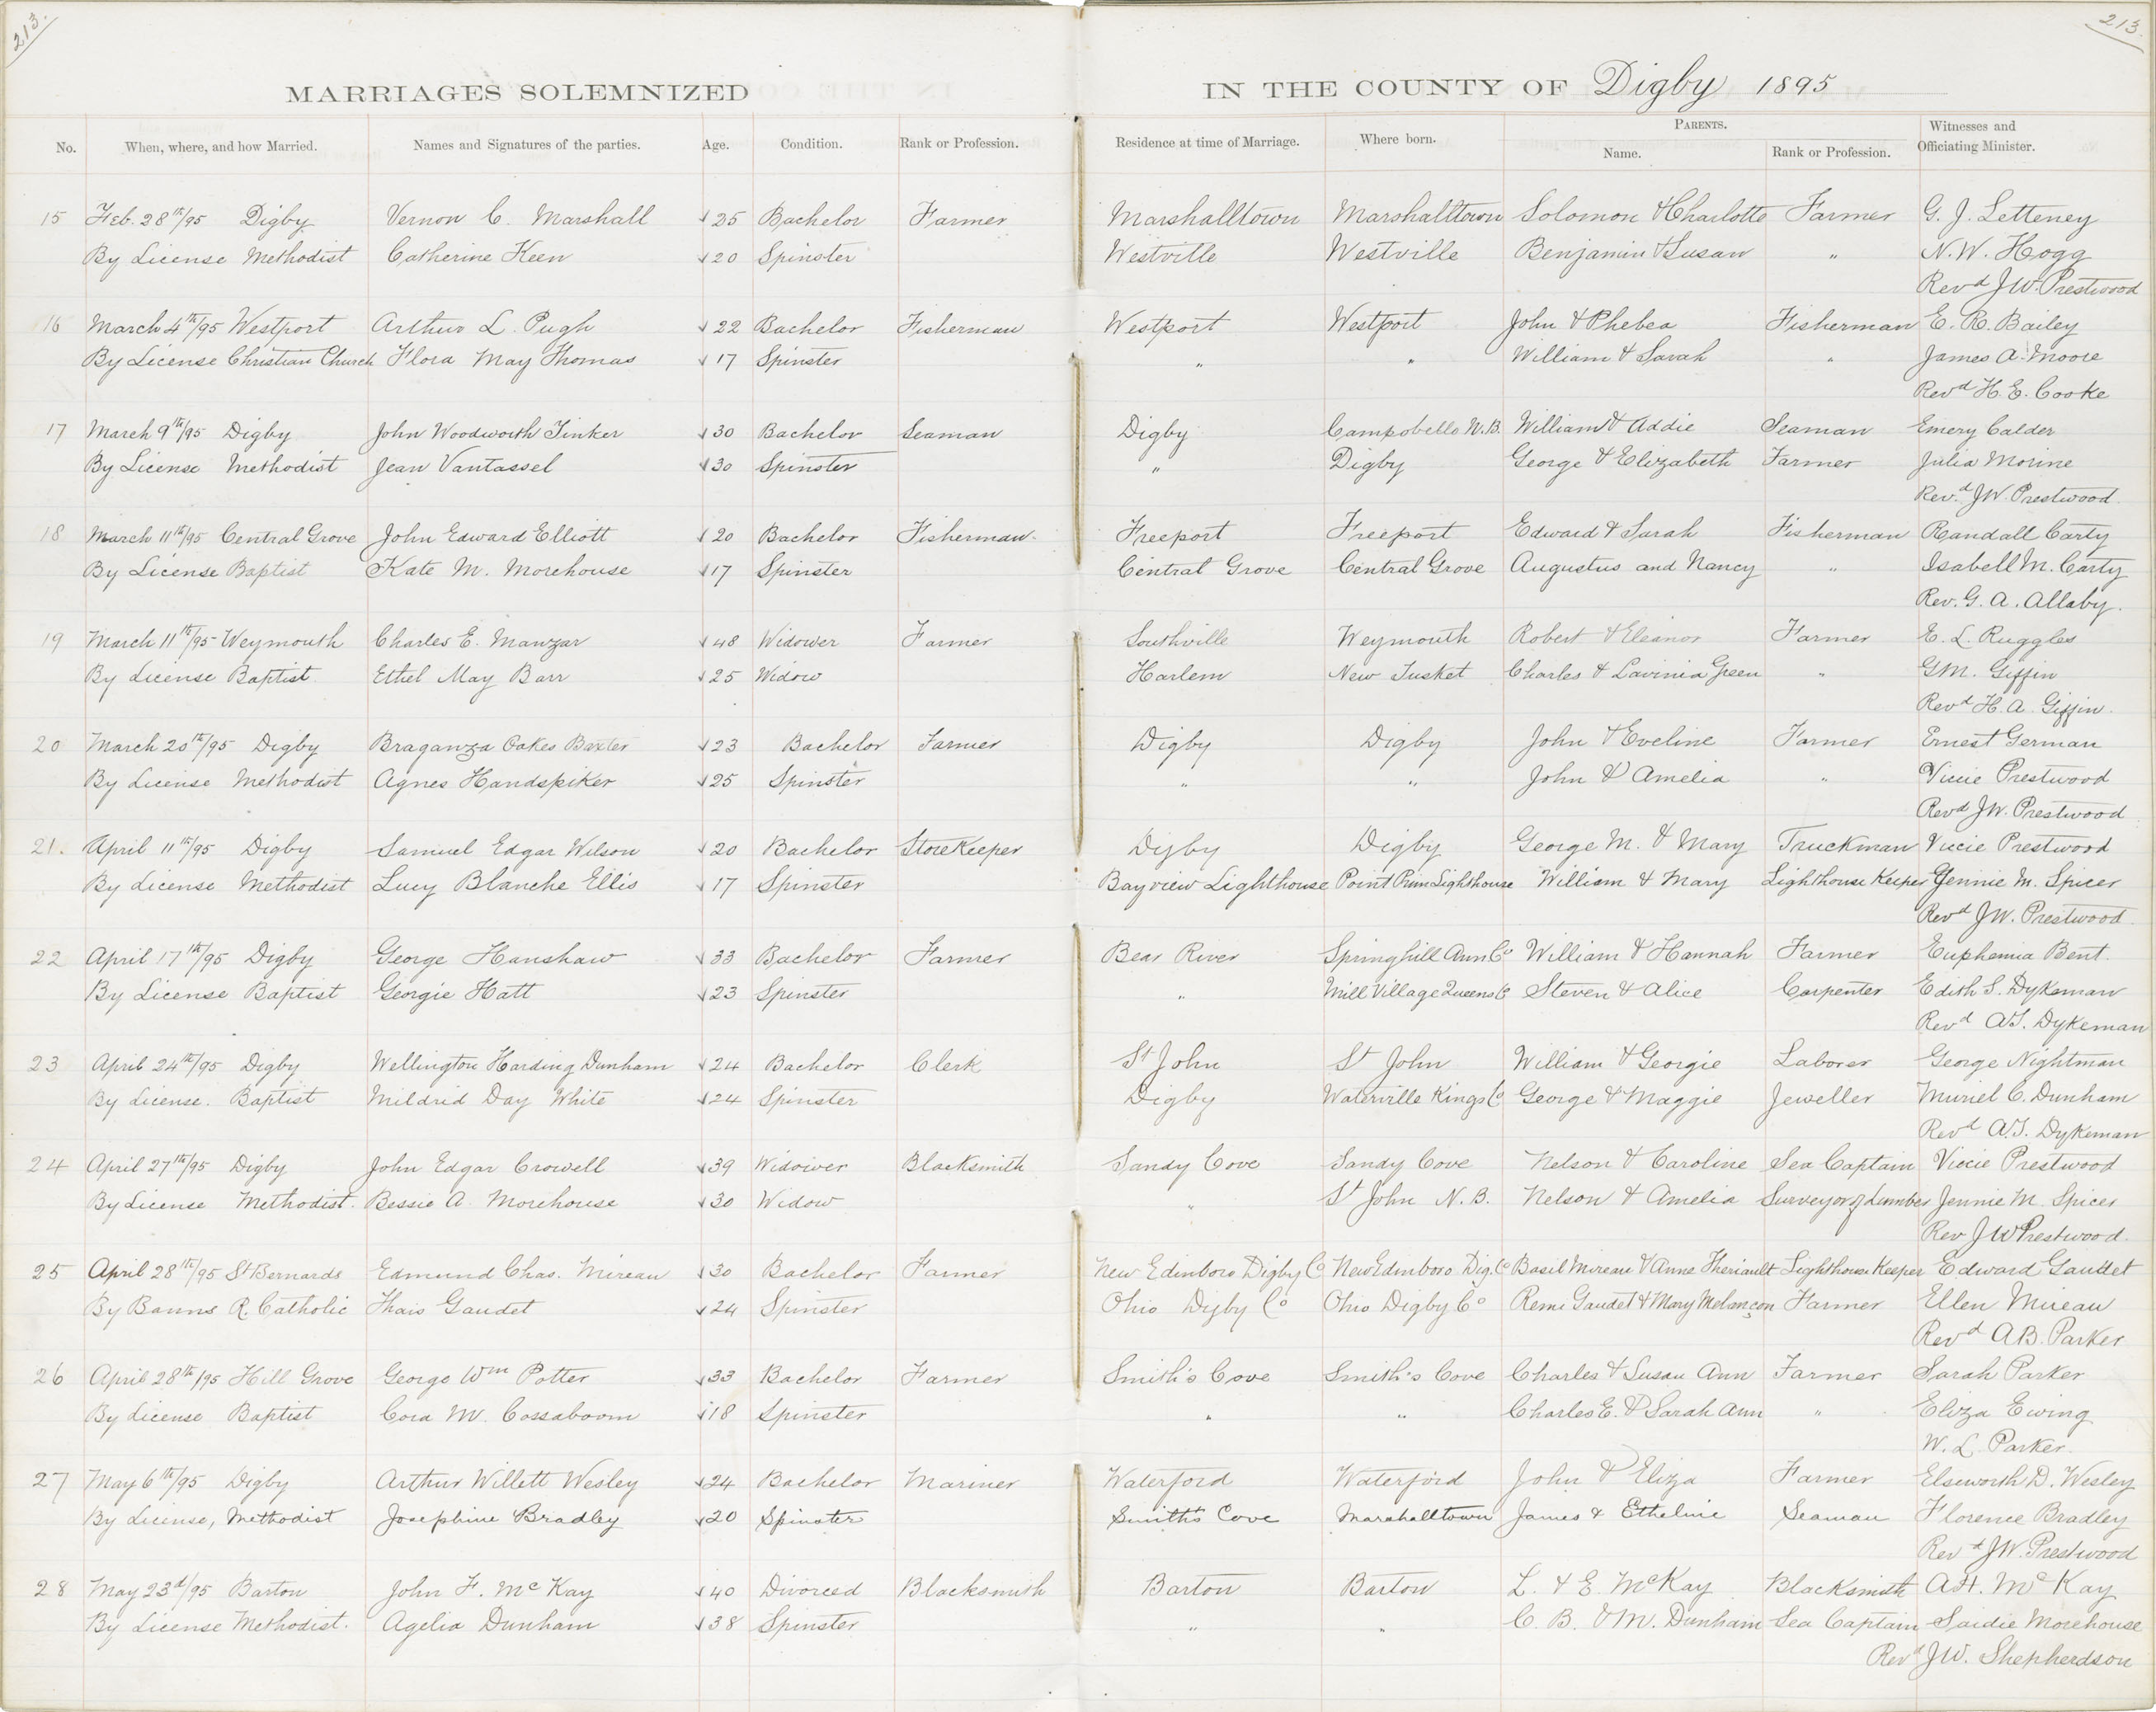 213. 213.
MARRIAGES SOLEMNIZED IN THE COUNTY OF Digby 1895
No. When, where, and how Married. Names and Signatures of the parties. Age. Condition. Rank or Profession. Residence at time of Marriage. Where born. PARENTS. Name. Rank or Profession. Witnesses and Officiating Minister.
15 Feb. 28th/95 Digby Vernon C. Marshall 25 Bachelor Farmer Marshalltown Marshalltown Solomon & Charlotte Farmer G. J. Letteney
By License Methodist Catherine Keen 20 Spinster Westville Westville Benjamin & Susan " N. W. Hogg
Revd J W. Prestwood
16 March 4th/95 Westport Arthur L. Pugh 22 Bachelor Fisherman Westport Westport John & Phebea Fisherman E. R. Bailey
By License Christian Church Flora May Thomas 17 Spinster " " William & Sarah " James A. Moore
Revd H. E. Cooke
17 March 9th/95 Digby John Woodworth Tinker 30 Bachelor Seaman Digby Campobello N.B. William & Addie Seaman Emery Calder
By License Methodist Jean Vantassel 30 Spinster " Digby George & Elizabeth Farmer Julia Morine
Rev.d J W. Prestwood
18 March 11th/95 Central Grove John Edward Elliott 20 Bachelor Fisherman Freeport Freeport Edward & Sarah Fisherman Randall Carty
By License Baptist Kate M. Morehouse 17 Spinster Central Grove Central Grove Augustus and Nancy " Isabell M. Carty
Rev. G. A. Allaby.
19 March 11th/95 Weymouth Charles E. Manzar 48 Widower Farmer Southville Weymouth Robert & Eleanor Farmer E. L. Ruggles
By License Baptist. Ethel May Barr 25 Widow Harlem New Tusket Charles & Lavinia Green " G M. Giffin
Revd H. A. Giffin.
20 March 20th/95 Digby Braganza Oakes Baxter 23 Bachelor Farmer Digby Digby John & Eveline Farmer Ernest German
By License Methodist Agnes Handspiker 25 Spinster " " John & Amelia " Viccie Prestwood
Revd J W. Prestwood
21. April 11th/95 Digby Samuel Edgar Wilson 20 Bachelor StoreKeeper Digby Digby George M. & Mary Truckman Viccie Prestwood
By License Methodist Lucy Blanche Ellis 17 Spinster Bayview Lighthouse Point Prim Lighthouse William & Mary Lighthouse Keeper Jennie M. Spicer
Revd J W. Prestwood.
22 April 17th/95 Digby George Hanshaw 33 Bachelor Farmer Bear River Springhill Ann Co William & Hannah Farmer Euphemia Bent.
By License Baptist Georgie Hatt 23 Spinster " Mill Village Queens Co Steven & Alice Carpenter Edith S. Dykeman
Revd A.T. Dykeman
23 April 24th/95 Digby Wellington Harding Dunham 24 Bachelor Clerk St John St John William & Georgie Laborer George Nightman
By License. Baptist Mildrid Day White 24 Spinster Digby Waterville Kings Co George & Maggie Jeweller Muriel C. Dunham
Revd A.T. Dykeman
24 April 27th/95 Digby John Edgar Crowell 39 Widower Blacksmith Sandy Cove Sandy Cove Nelson & Caroline Sea Captain Viccie Prestwood
By License Methodist. Bessie A. Morehouse 30 Widow " St John N.B. Nelson & Amelia Surveyor of Lumber Jennie M. Spicer
Rev J W Prestwood.
25 April 28th/95 St Bernards Edmund Chas. Mireau 30 Bachelor Farmer New Edinboro Digby Co New Edinboro Dig. Co Basil Mireau & Anne Theriault Lighthouse Keeper Edward Gaudet
By Banns R. Catholic Thais Gaudet 24 Spinster Ohio Digby Co Ohio Digby Co Remi Gaudet & Mary Melançon Farmer Ellen Mireau
Revd A.B. Parker
26 April 28th/95 Hill Grove George Wm Potter 33 Bachelor Farmer Smith's Cove Smith's Cove Charles & Susan Ann Farmer Sarah Parker
By License Baptist Cora M. Cossaboom 18 Spinster " " Charles E. & Sarah Ann " Eliza Ewing
W. L. Parker.
27 May 6th/95 Digby Arthur Willett Wesley 24 Bachelor Mariner Waterford Waterford John & Eliza Farmer Elseworth D. Wesley
By License, Methodist Josephine Bradley 20 Spinster Smiths Cove Marshalltown James & Etheline Seaman Florence Bradley
Revd J W. Prestwood
28 May 23d/95 Barton John F. McKay 40 Divorced Blacksmith Barton Barton L. & E. McKay Blacksmith A H. McKay
By License Methodist. Agelia Dunham 38 Spinster " " C. B. & M. Dunham Sea Captain Saidie Morehouse
Revd J W. Shepherdson